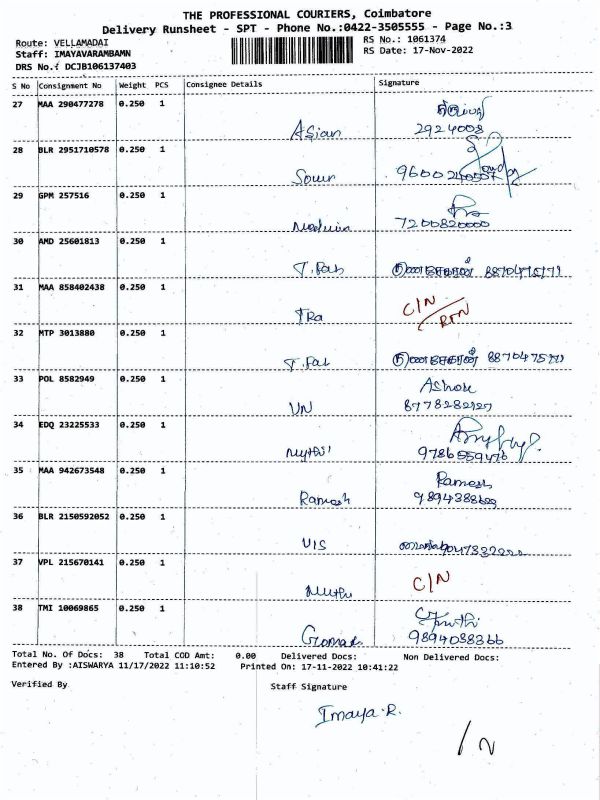 THE PROFESSIONAL COURIERS, Coimbatore
Delivery Runsheet - SPT - Phone No.:0422-3505555 - Page No.:3
Route: VELLAMADAI RS No.: 1061374
Staff: IMAYAVARAMBAMN RS Date: 17-Nov-2022
DRS No.: DCJB106137403
S No Consignment No Weight PCS Consignee Details Signature
27 MAA 290477278 0.250 1
Asian 2924008
28 BLR 2951710578 0.250 1
Sown
29 GPM 257516 0.250 1
7200820000
30 AMD 25601813 0.250 1
T.Fab
31 MAA 858402438 0.250 1 C/N
TRa RTN
32 MTP 3013880 0.250 1
T.Fab
33 POL 8582949 0.250 1 Ashok
VN 8778282127
34 EDQ 23225533 0.250 1
9786559476
35 MAA 942673548 0.250 1 Ramesh
Ramesh
36 BLR 2150592052 0.250 1
VIS
37 VPL 215670141 0.250 1 C/N
Muthu
38 TMI 10069865 0.250 1
9894038366
Total No. Of Docs: 38 Total COD Amt: 0.00 Delivered Docs: Non Delivered Docs:
Entered By :AISWARYA 11/17/2022 11:10:52 Printed On: 17-11-2022 10:41:22
Verified By Staff Signature
Imaya.R.